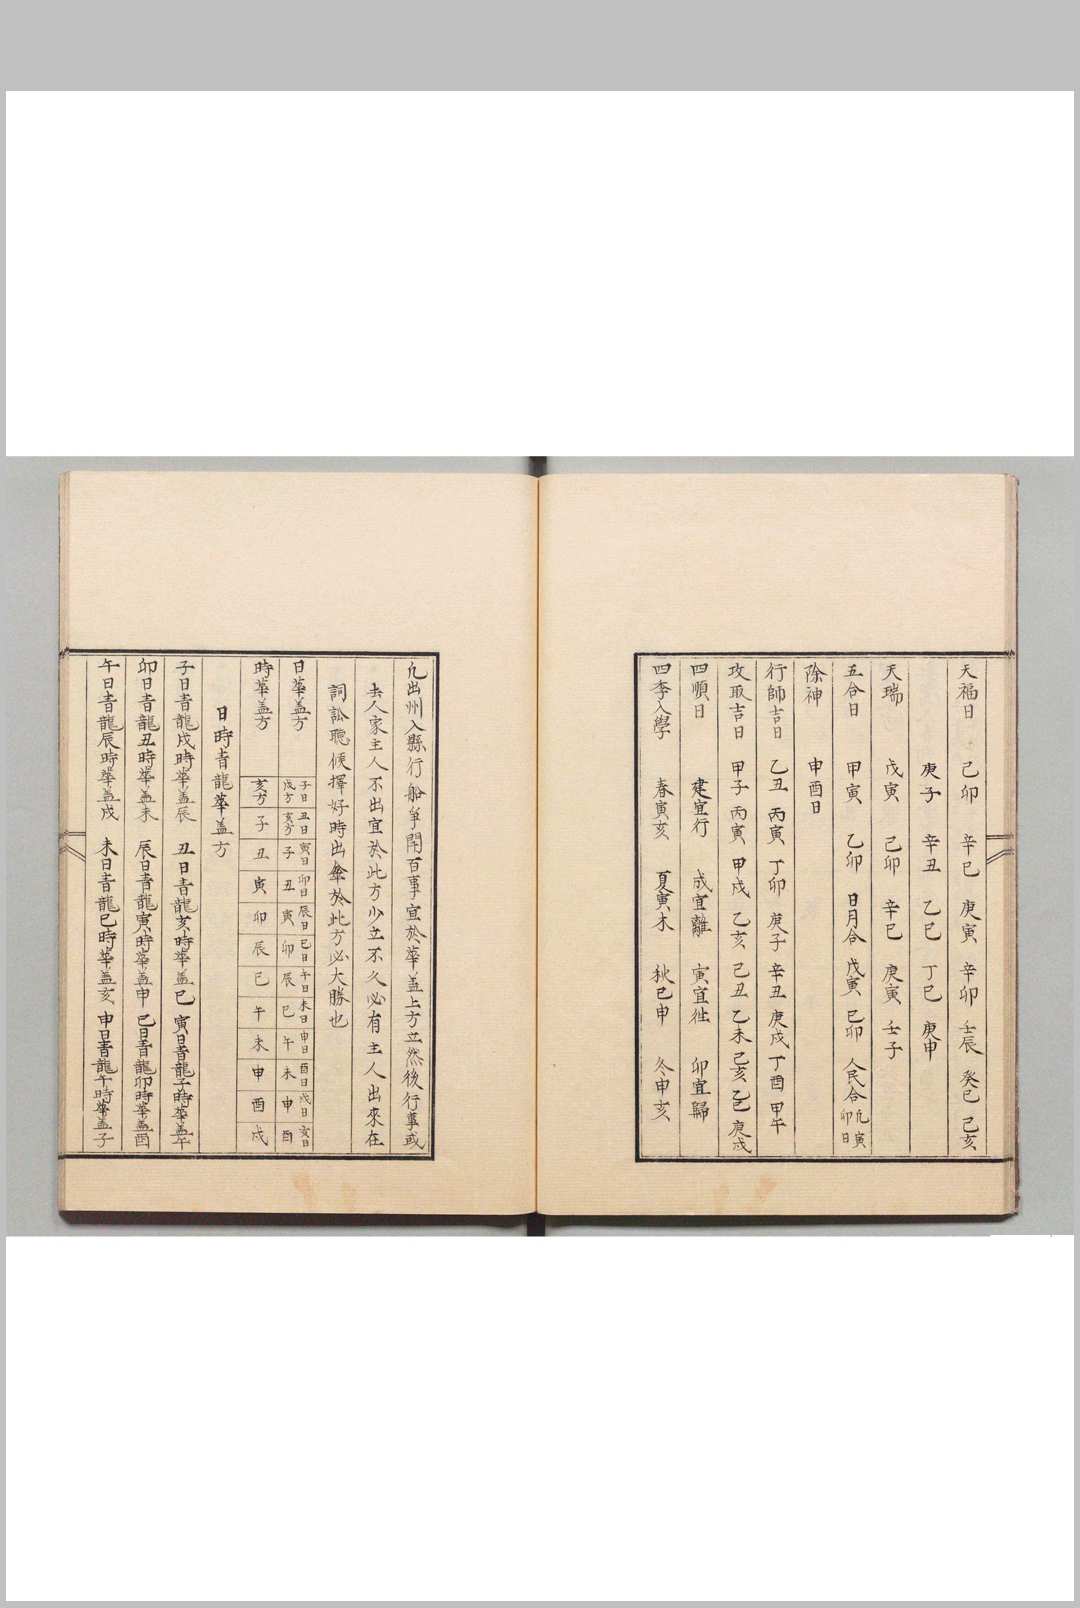 天福日 己卯 辛巳 庚寅 辛卯 壬辰 癸巳 己亥
庚子 辛丑 乙巳 丁巳 庚申
天瑞 戊寅 己卯 辛巳 庚寅 壬子
五合日 甲寅 乙卯 日月合 戊寅 己卯 人民合 凡寅卯日
除神 申酉日
行師吉日 乙丑 丙寅 丁卯 庚子 辛丑 庚戌 丁酉 甲午
攻取吉日 甲子 丙寅 甲戌 乙亥 己丑 乙未 己亥 乙巳 庚戌
四順日 建宜行 成宜離 寅宜徃 卯宜歸
四季入學 春寅亥 夏寅木 秋巳申 冬申亥
凢出州入縣行船爭鬧百事宜於華盖上方立然後行事或
去人家主人不出宜於此方少立不久必有主人出來在
詞訟聽候擇好時出傘於此方必大勝也
日華盖方 子日戌方 丑日亥方 寅日子 卯日丑 辰日寅 巳日卯 午日辰 未日巳 申日午 酉日未 戌日申 亥日酉
時華盖方 亥方 子 丑 寅 卯 辰 巳 午 未 申 酉 戌
日時青龍華盖方
子日青龍戌時華盖辰 丑日青龍亥時華盖巳 寅日青龍子時華盖午
卯日青龍丑時華盖未 辰日青龍寅時華盖申 巳日青龍卯時華盖酉
午日青龍辰時華盖戌 未日青龍巳時華盖亥 申日青龍午時華盖子